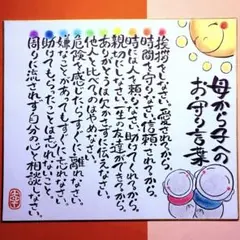 母から子への
お守り言葉
挨拶をしなさい。愛されてから。
時間を守りなさい。信頼されてから。
時には人を頼りなさい。助けてくれてから。
親切にしなさい。一生の友達ができてから。
ありがとうは欠かさずに伝えなさい。
他人と比べるのはやめなさい。
危険を感じたらすぐに離れなさい。
嫌なことがあってもすぐに忘れなさい。
助けてもらったことは忘れないこと。
周りに流されず自分の心に相談しなさい。